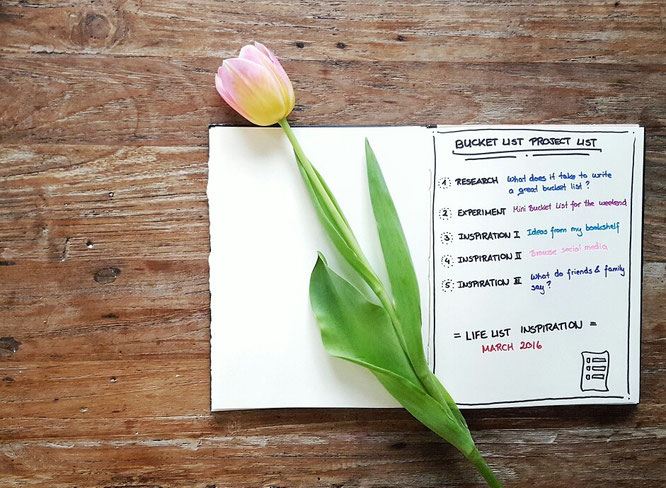 BUCKET LIST PROJECT LIST
1 RESEARCH What does it take to write
a great bucket list?
2 EXPERIMENT Mini Bucket List for the weekend
3 INSPIRATION I Ideas from my bookshelf
4 INSPIRATION II Browse social media
5 INSPIRATION III What do friends & family
say?
= LIFE LIST INSPIRATION =
MARCH 2016